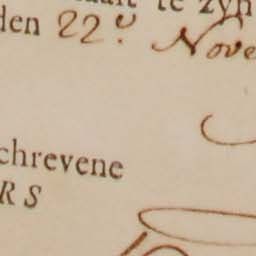 te zyn
den 22.e Nove
chrevene
RS